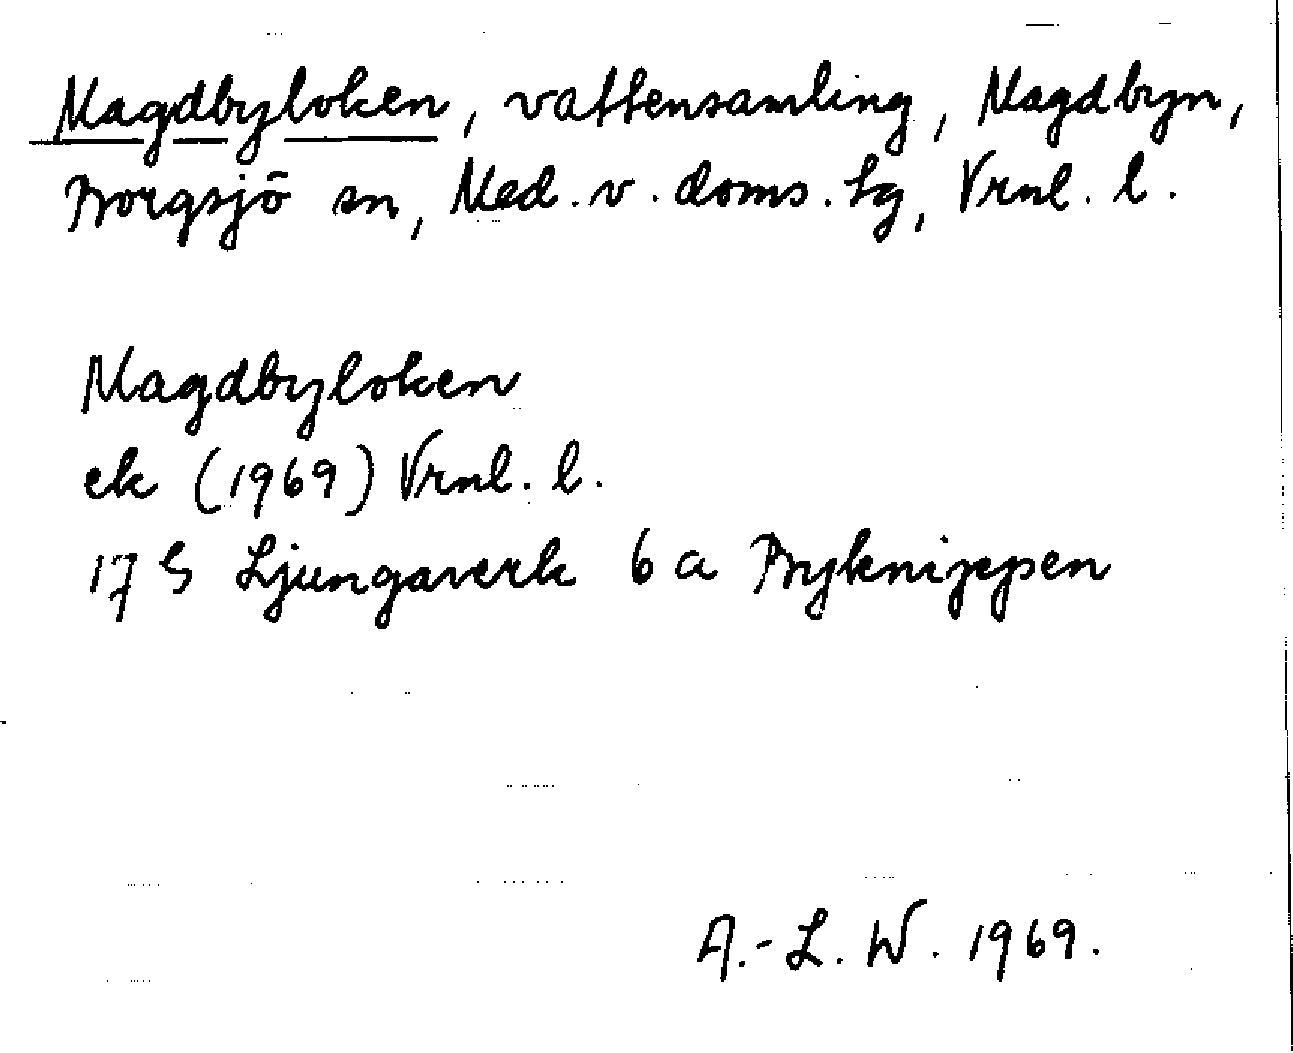 Magdbyloken, vattensamling, Magdbyn,
Borgsjö sn, Med. v. doms. tg, Vrnl. l.
Magdbyloken
ek (1969) Vrnl. l.
17 G Ljungaverk 6 a Byknippen
A.-L. W. 1969.